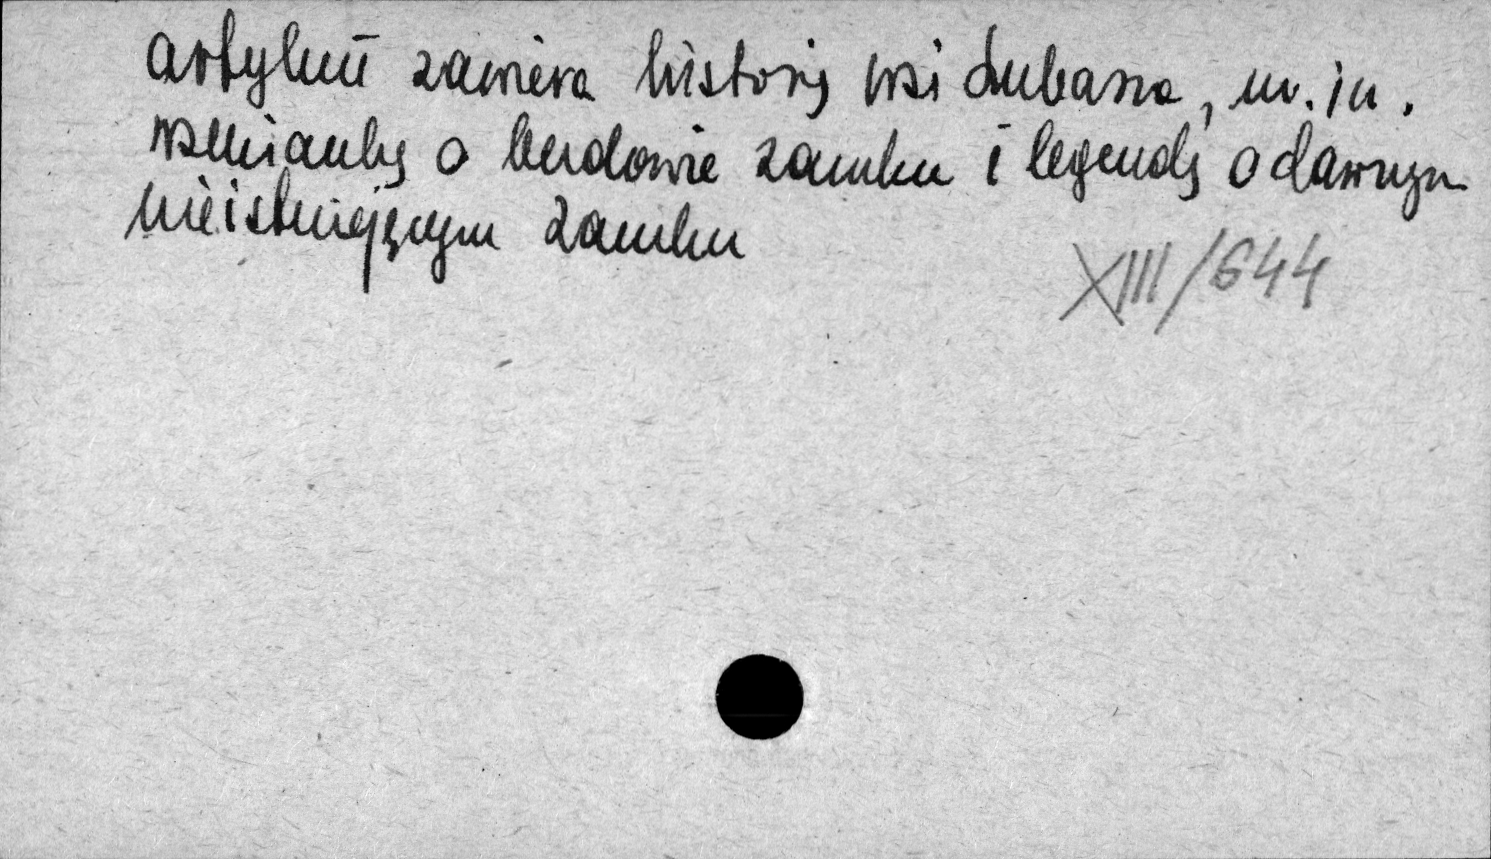 artykuł zawiera historię wsi Lubasza, m.in.
wzmiankę o budowie zamku i legendę o dawnym
nieistniejącym zamku
XIII/644